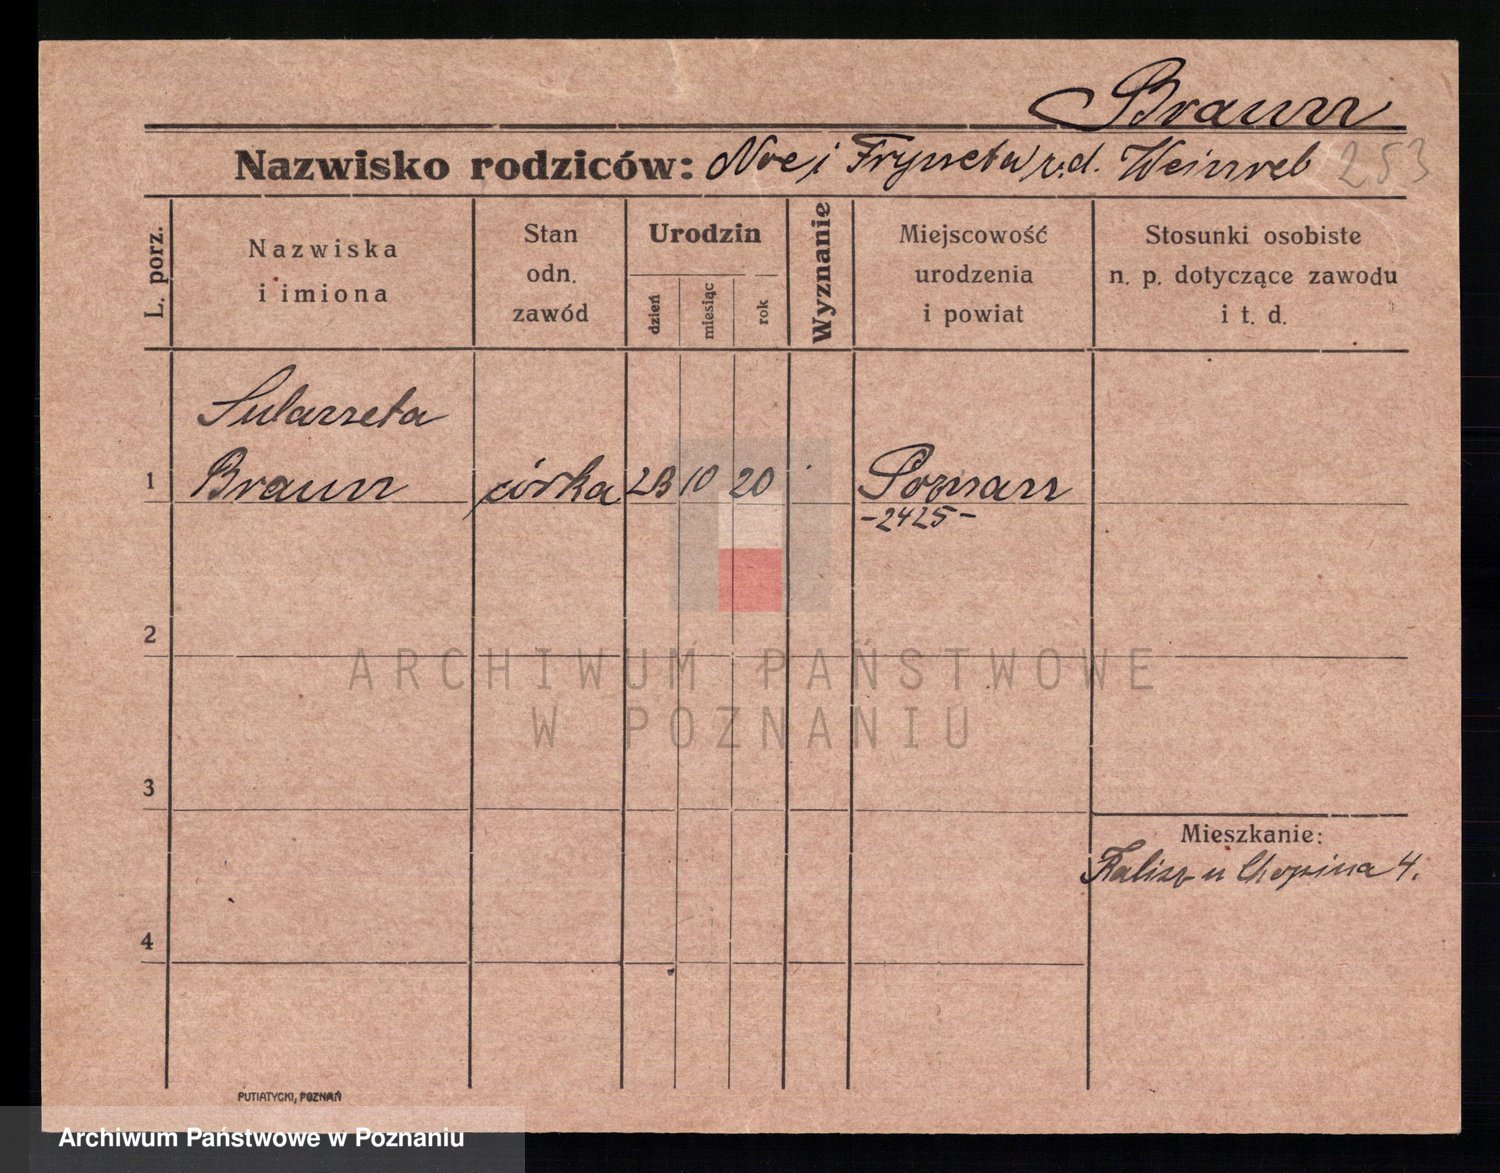 Braun
Nazwisko rodziców: Noe i Fryneta r.d. Weinreb 253
L. porz.
Nazwiska
i imiona
Stan
odn.
zawód
Urodzin
dzień
miesiąc
rok
Wyznanie
Miejscowość
urodzenia
i powiat
Stosunki osobiste
n. p. dotyczące zawodu
i t. d.
1
Braun
córka
10
20
Poznań
-2425-
2
3
4
Mieszkanie:
Kalisz u Chopina 4.
ARCHIWUM PAŃSTWOWE
W POZNANIU
PUTIATYCKI, POZNAŃ
Archiwum Państwowe w Poznaniu